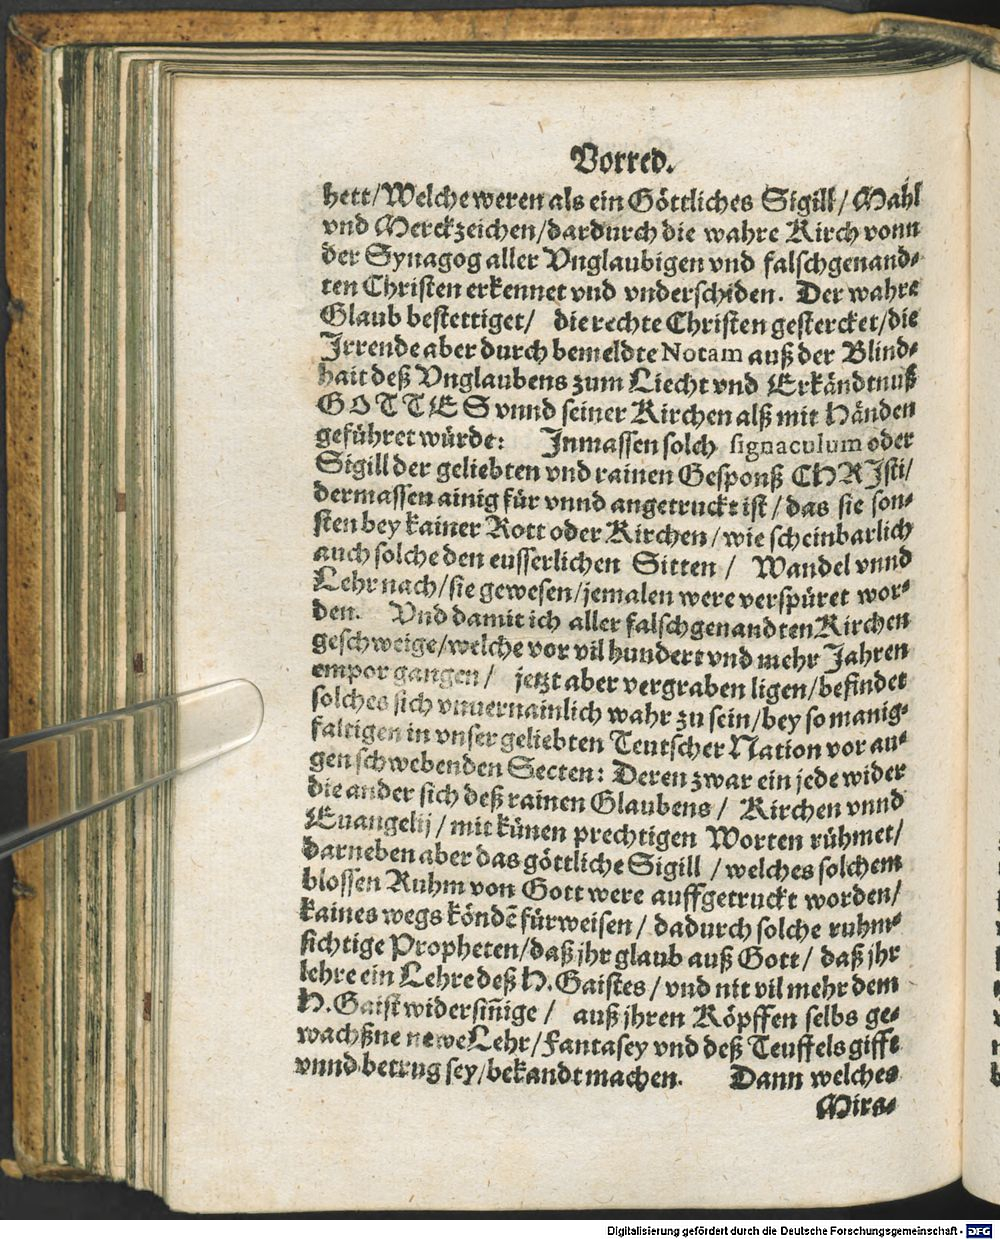 Vorred.
hett/Welche weren als ein Göttliches Sigill/Mahl
vnd Merckzeichen/dardurch die wahre Kirch vonn
der Synagog aller Vnglaubigen vnd falschgenand-
ten Christen erkennet vnd vnderschiden. Der wahre
Glaub bestettiget/ die rechte Christen gestercket/die
Irrende aber durch bemeldte Notam auß der Blind-
hait deß Vnglaubens zum Liecht vnd Erkändtnuß
GOTTES vnnd seiner Kirchen alß mit Händen
geführet würde: Inmassen solch signaculum oder
Sigill der geliebten vnd rainen Gesponß CHRIsti/
dermassen ainig für vnnd angetruckt ist/das sie son-
sten bey kainer Rott oder Kirchen/wie scheinbarlich
auch solche den eusserlichen Sitten/ Wandel vnnd
Lehr nach/sie gewesen/jemalen were verspüret wor-
den. Vnd damit ich aller falschgenandten Kirchen
geschweige/welche vor vil hundert vnd mehr Jahren
empor gangen/ jetzt aber vergraben ligen/befindet
solches sich vnuernainlich wahr zu sein/bey so manig-
faltigen in vnser geliebten Teutscher Nation vor au-
gen schwebenden Secten: Deren zwar ein jede wider
die ander sich deß rainen Glaubens/ Kirchen vnnd
Euangelij/mit künen prechtigen Worten rühmet/
darneben aber das göttliche Sigill/welches solchem
blossen Ruhm von Gott were auffgetruckt worden/
kaines wegs köndē fürweisen/dadurch solche ruhm-
sichtige Propheten/daß jhr glaub auß Gott/daß jhr
lehre ein Lehre deß H. Gaistes/vnd nit vil mehr dem
H. Gaist widersiñige/ auß jhren Köpffen selbs ge-
wachßne newe Lehr/Fantasey vnd deß Teuffels gifft
vnnd betrug sey/bekandt machen. Dann welches
Mira-
Digitalisierung gefördert durch die Deutsche Forschungsgemeinschaft - DFG